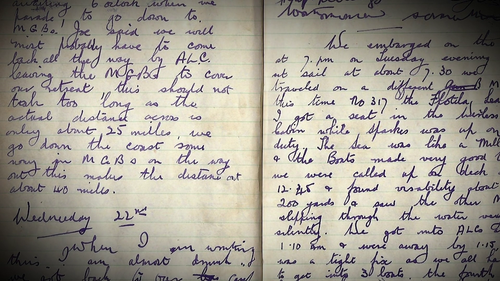 6 oclock when we
parade to go down to
M.G.Bs. Joe said we will
most probably have to come
back all the way by ALC.
leaving the MGBs to cover
our retreat this should not
take too long as the
actual distance across is
only about 25 miles, we
go down the coast some
way in MGBs on the way
out this makes the distance out
about 40 miles.
Wednesday 22nd
When I am writing
this I am almost
We embarked on the
at 7. pm on Tuesday evening
set sail at about 7.30 we
travelled on a different
this time No 317, the Flotilla
I got a seat in the wireless
cabin while Sparkes was up on
duty. The Sea was like a Mill
& the Boats made very good
we were called up on deck
12.45 & found visability about
200 yards & saw the other M
slipping through the water very
silently. We got into ALCs
1.10 am & were away by 1.15
was a tight fix as we all had
to get into 3 boats. the fourth